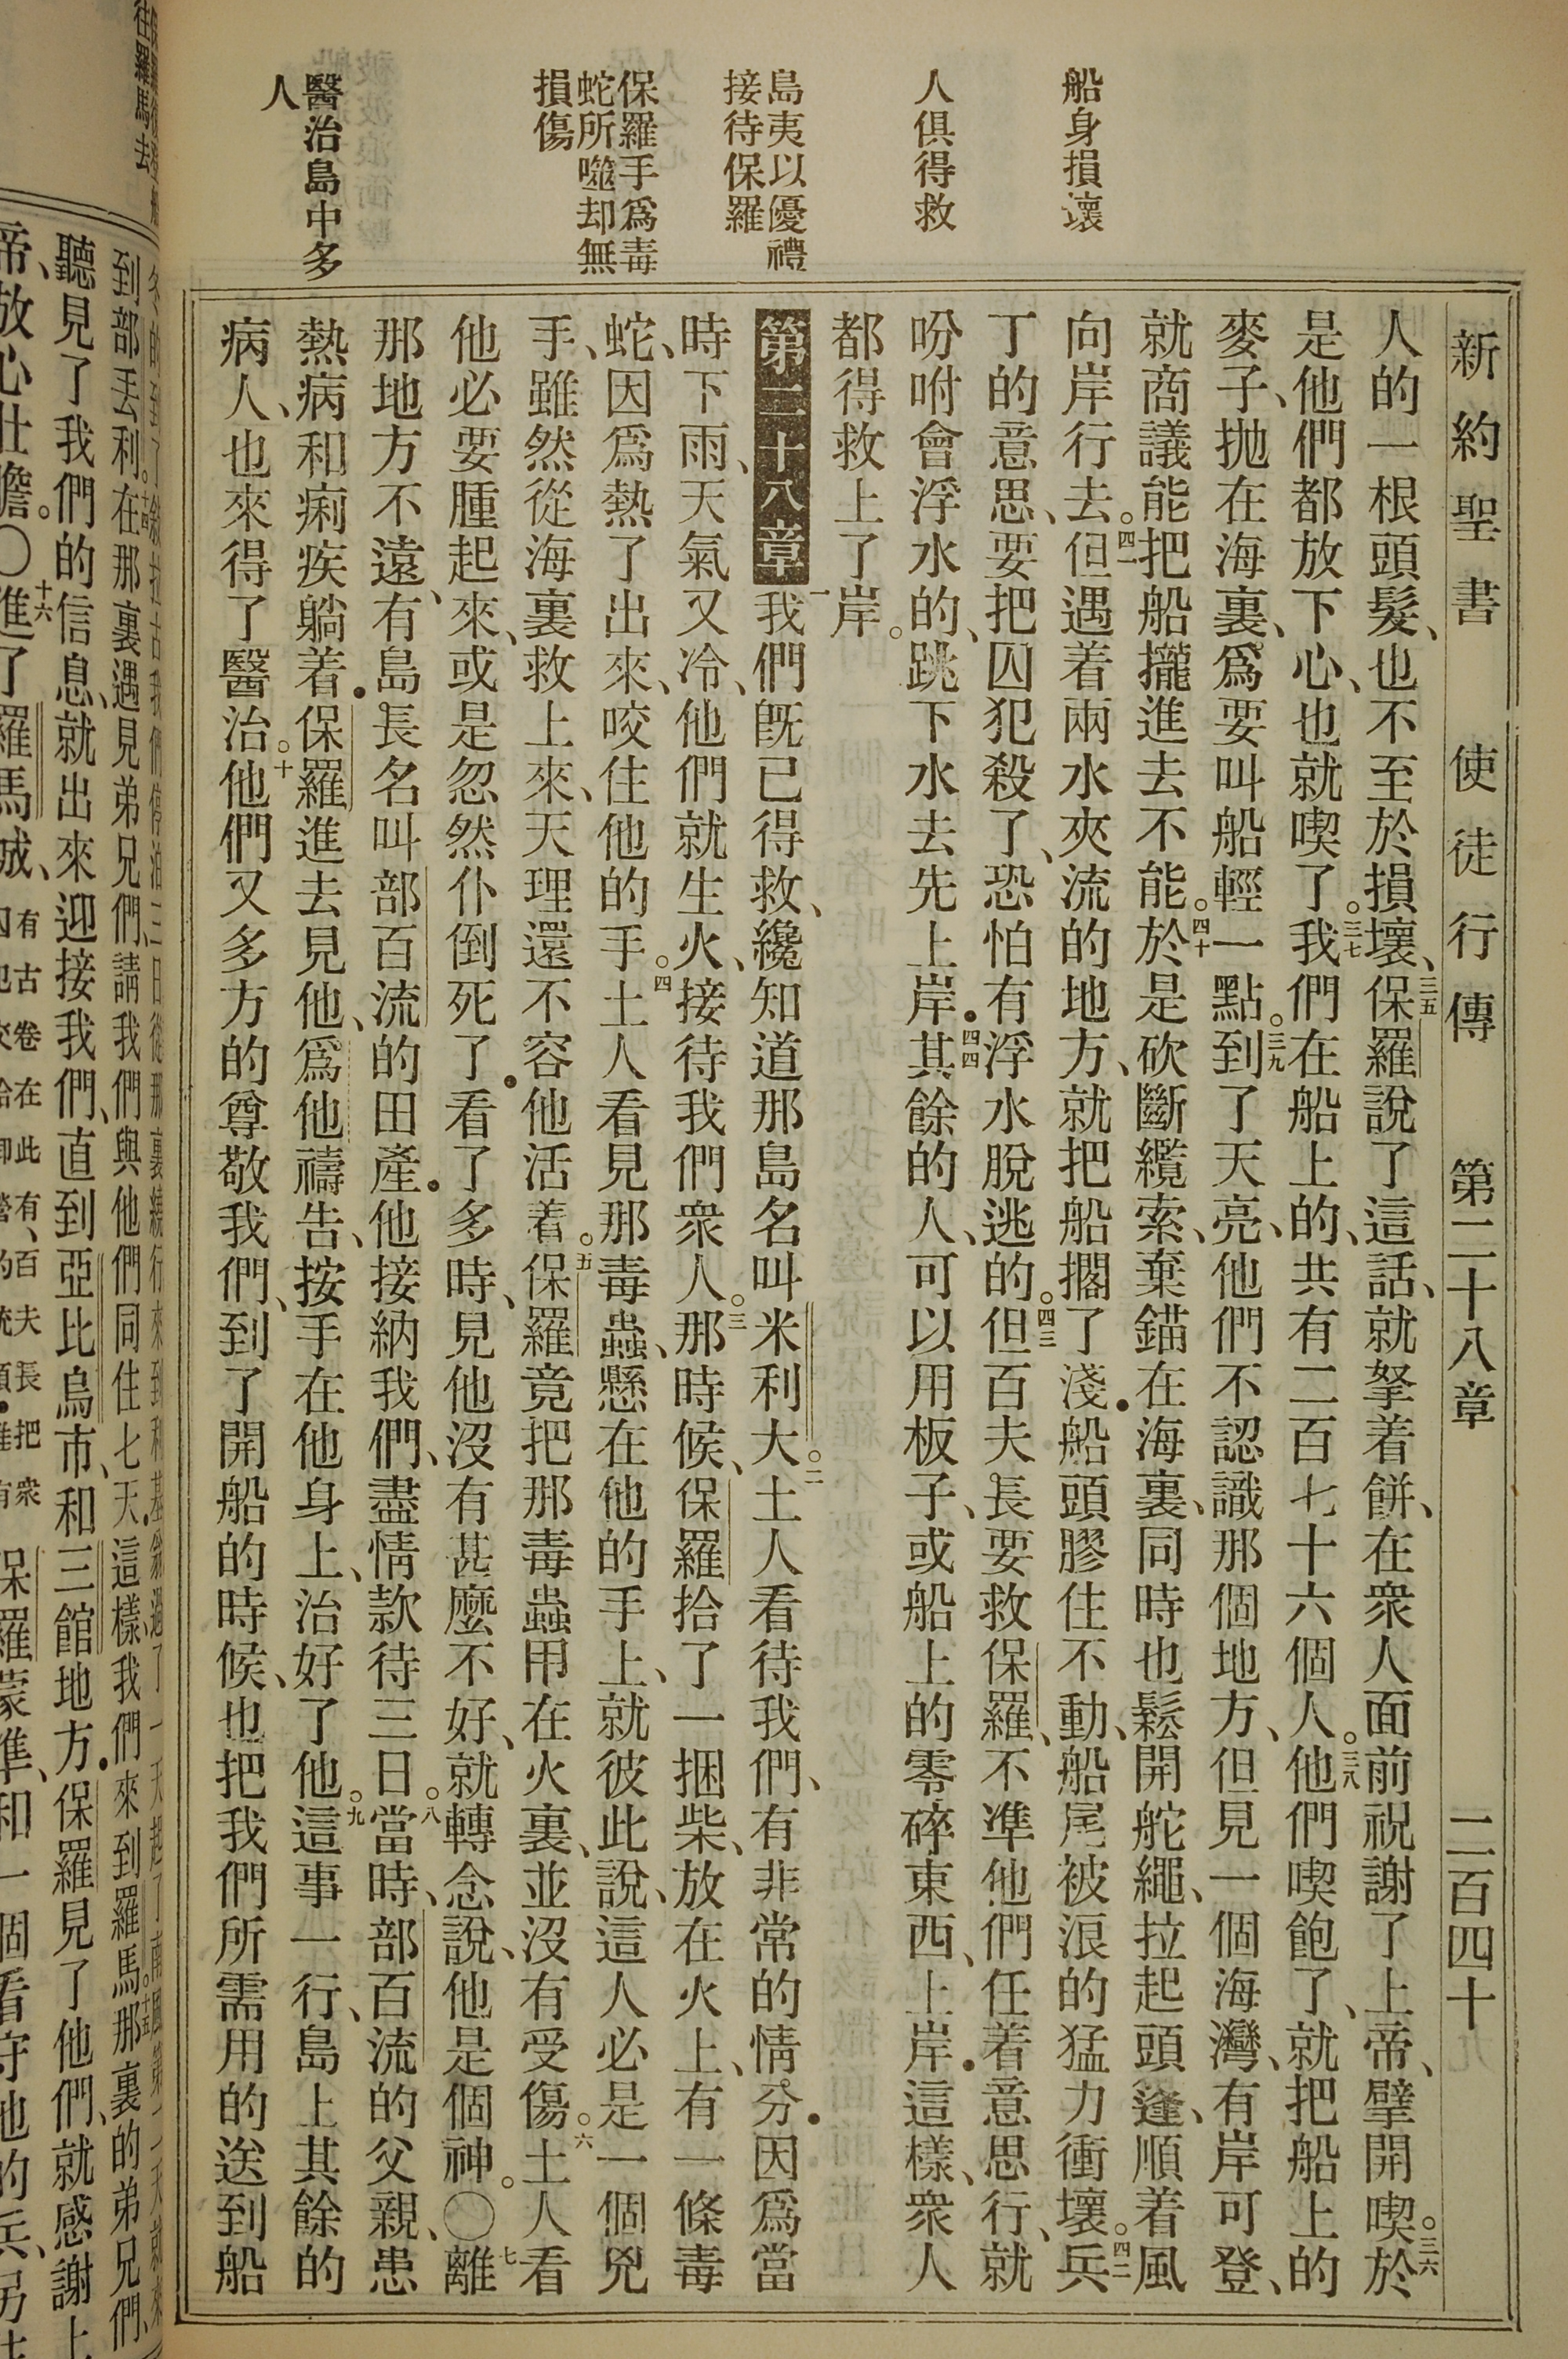 新約聖書　使徒行傳　第二十八章　二百四十
船身損壞
人俱得救
島夷以優禮
接待保羅
保羅手爲毒
蛇所噬却無
損傷
醫治島中多
人
人的一根頭髮、也不至於損壞、三五保羅說了這話、就拏着餠、在衆人面前祝謝了上帝、擘開喫。三六於
是他們都放下心、也就喫了。三七我們在船上的、共有二百七十六個人。三八他們喫飽了、就把船上的
麥子、抛在海裏、爲要叫船輕一點。三九到了天亮、他們不認識那個地方、但見一個海灣、有岸可登、
就商議能把船攏進去不能。四十於是砍斷纜索、棄錨在海裏、同時也鬆開舵繩、拉起頭篷、順着風
向岸行去。四一但遇着兩水夾流的地方、就把船擱了淺•船頭膠住不動、船尾被浪的猛力衝壞。四二兵
丁的意思、要把囚犯殺了、恐怕有浮水脫逃的。四三但百夫長要救保羅、不準他們任着意思行、就
吩咐會浮水的、跳下水去先上岸•四四其餘的人、可以用板子、或船上的零碎東西、上岸•這樣、衆人
都得救上了岸。
第二十八章一我們旣已得救、纔知道那島名叫米利大。二土人看待我們、有非常的情分•因爲當
時下雨、天氣又冷、他們就生火、接待我們衆人。三那時候、保羅拾了一捆柴、放在火上、有一條毒
蛇、因爲熱了出來、咬住他的手。四土人看見那毒蟲、懸在他的手上、就彼此說、這人必是一個兇
手、雖然從海裏救上來、天理還不容他活着。五保羅竟把那毒蟲甩在火裏、並沒有受傷。六土人看
他必要腫起來、或是忽然仆倒死了•看了多時、見他沒有甚麽不好、就轉念說、他是個神。〇七離
那地方不遠、有島長名叫部百流的田產•他接納我們、盡情款待三日。八當時、部百流的父親、患
熱病和痢疾躺着•保羅進去見他、爲他禱告、按手在他身上、治好了他。九這事一行、島上其餘的
病人、也來得了醫治。十他們又多方的尊敬我們、到了開船的時候、也把我們所需用的送到船
到部丟利。在那裏遇見弟兄們、請我們與他們同住七天•這樣、我們來到羅馬。那裏的弟兄們、
聽見了我們的信息、就出來迎接我們、直到亞比烏市、和三館地方•保羅見了他們、就感謝上
帝、放心壯膽。〇十六進了羅馬城、
有古卷在此有、百夫長把衆
保羅蒙準、和一個看守他的兵、另